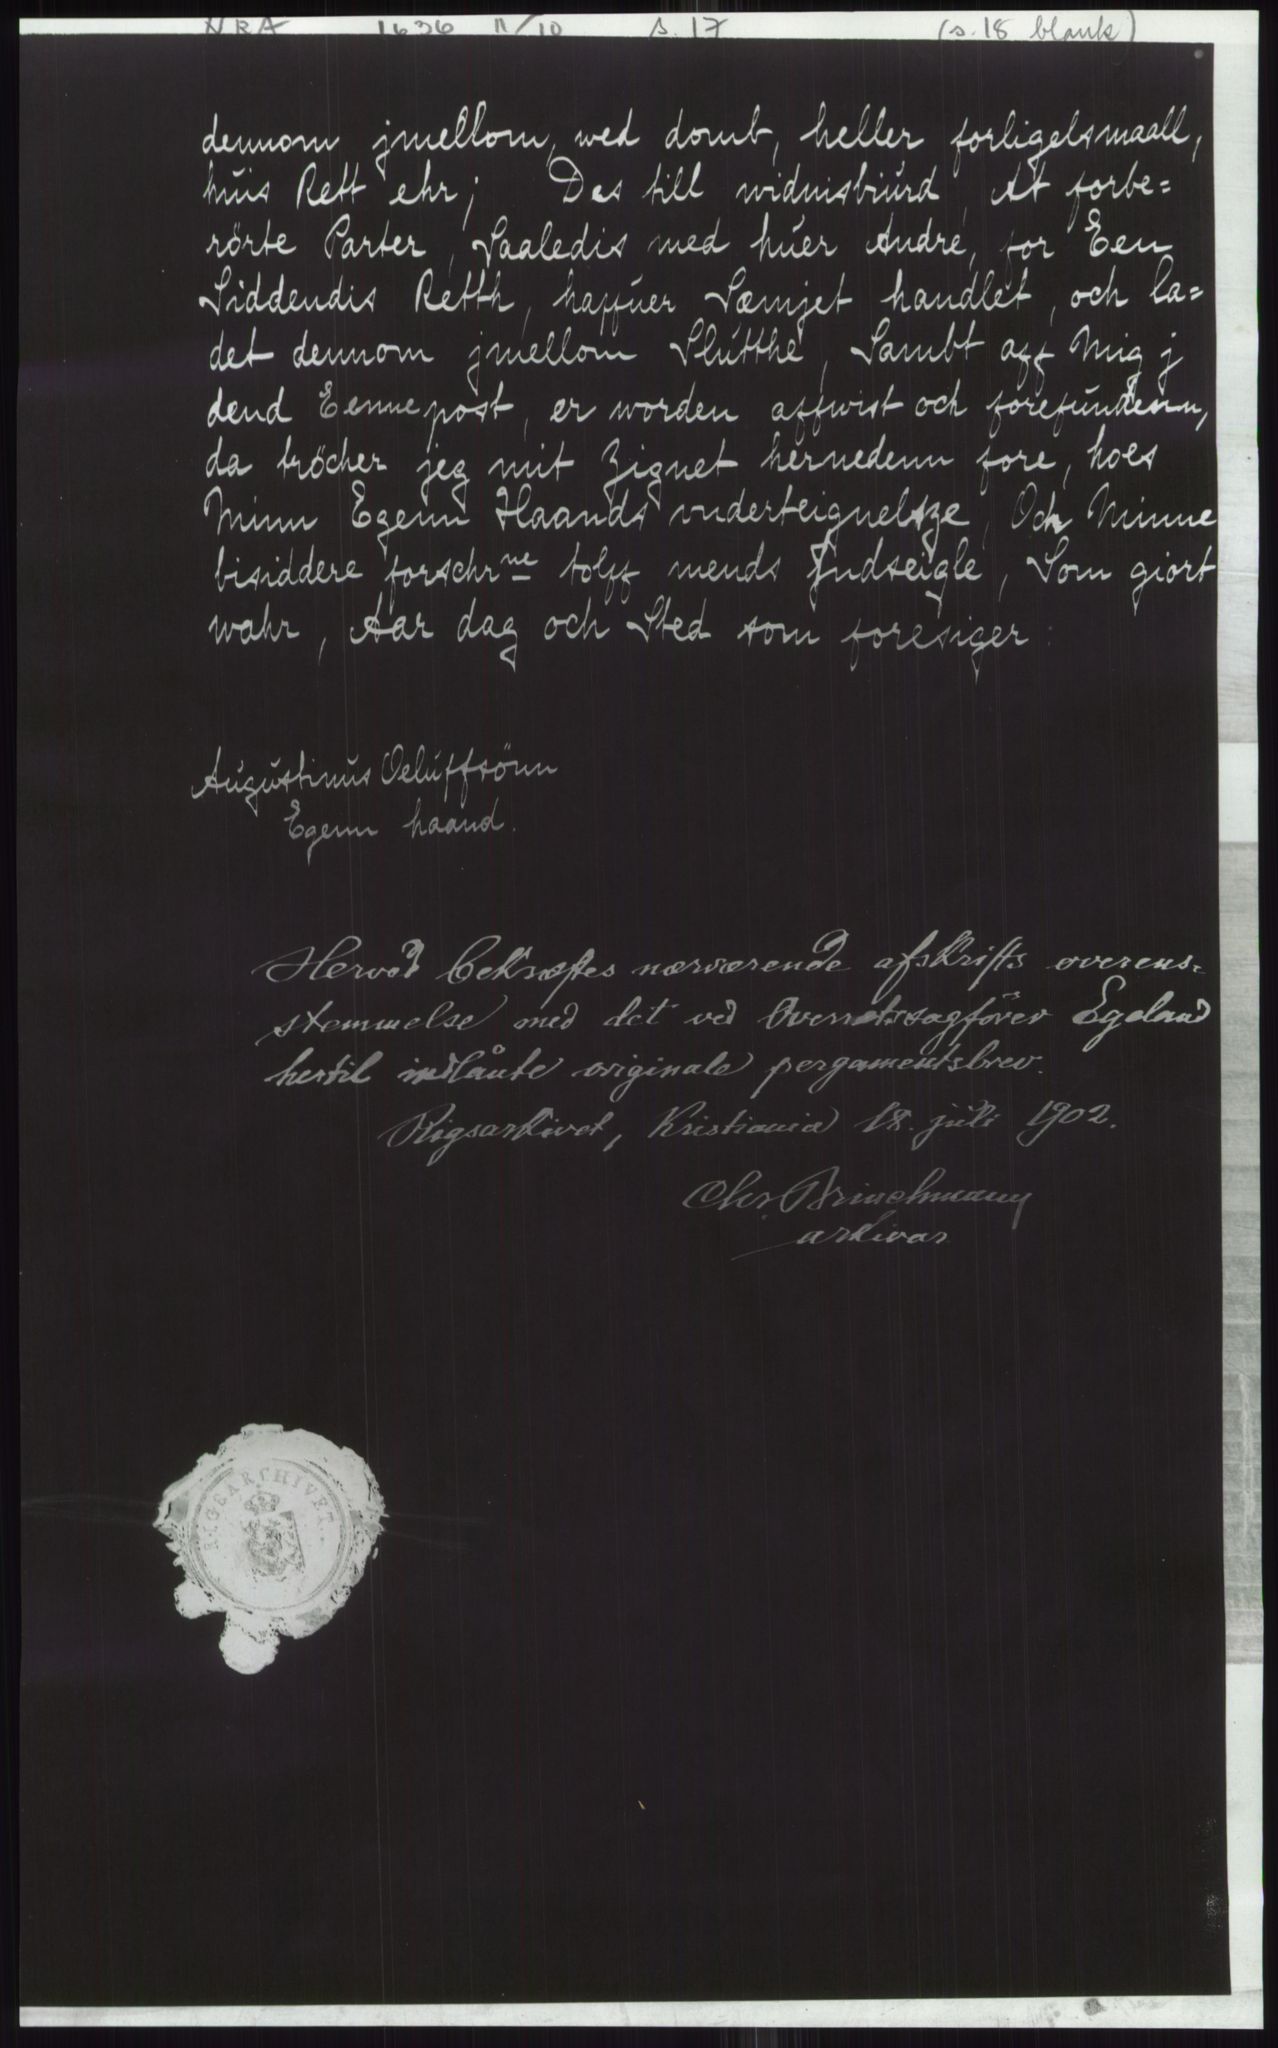 NRA 1636 11/10 s. 17 (s. 18 blank)
dennom jmellom, wed domb, heller forligelsmaall,
huis Rett ehr; Des till widnisbiurd, At forbe=
rörte Parter, Saaledis med huer Andre, for Een
Siddendis Retth, haffuer Sæmjet handlet, och la=
det dennom jmellom Slutthe, Sambt aff Mig j
dend Eenne post, er worden affwist och forefundenn,
da tröcher jeg mit Zignet hernedenn fore, hoes
Minn Egenn Haands vnderteignelsze, Och Minne
bisiddere forschrne tolff mends Jndseigle, Som giort
wahr, Aar dag och Sted som foresiger:
Augustinus Oeluffsönn
Egenn haand.
Herved bekræftes nærværende afskrifts overens-
stemmelse med det ved Overretssagförer Egeland
hertil indlånte originale pergamentsbrev.
Rigsarkivet, Kristiania 18. juli 1902.
Chr. Brinchmann
arkivar
RIGSARCHIVET.